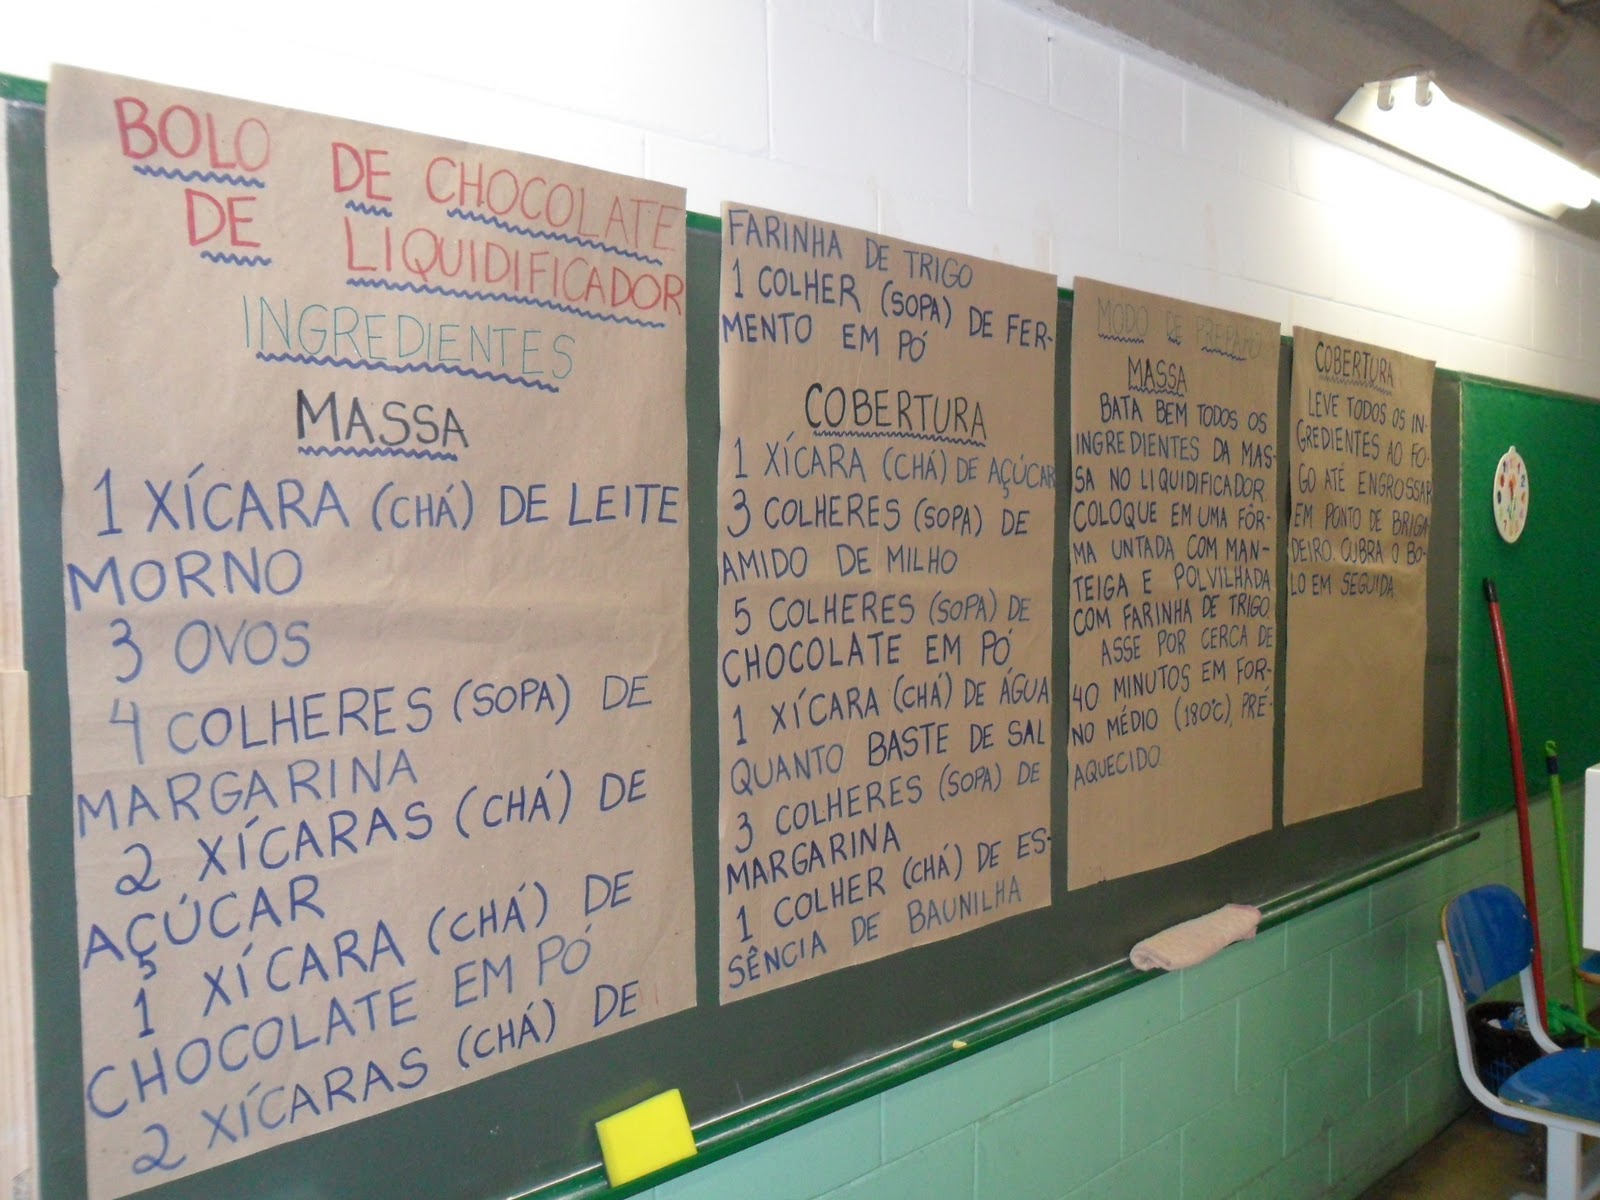 BOLO DE CHOCOLATE
DE LIQUIDIFICADOR
INGREDIENTES
MASSA
1 XÍCARA (CHÁ) DE LEITE
MORNO
3 OVOS
4 COLHERES (SOPA) DE
MARGARINA
2 XÍCARAS (CHÁ) DE
AÇÚCAR
1 XÍCARA (CHÁ) DE
CHOCOLATE EM PÓ
2 XÍCARAS (CHÁ) DE
FARINHA DE TRIGO
1 COLHER (SOPA) DE FER-
MENTO EM PÓ
COBERTURA
1 XÍCARA (CHÁ) DE AÇÚCAR
3 COLHERES (SOPA) DE
AMIDO DE MILHO
5 COLHERES (SOPA) DE
CHOCOLATE EM PÓ
1 XÍCARA (CHÁ) DE ÁGUA
QUANTO BASTE DE SAL
3 COLHERES (SOPA) DE
MARGARINA
1 COLHER (CHÁ) DE ES-
SÊNCIA DE BAUNILHA
MODO DE PREPARO
MASSA
BATA BEM TODOS OS
INGREDIENTES DA MAS-
SA NO LIQUIDIFICADOR.
COLOQUE EM UMA FÔR-
MA UNTADA COM MAN-
TEIGA E POLVILHADA
COM FARINHA DE TRIGO.
ASSE POR CERCA DE
40 MINUTOS EM FOR-
NO MÉDIO (180°C), PRÉ-
AQUECIDO.
COBERTURA
LEVE TODOS OS IN-
GREDIENTES AO FO-
GO ATÉ ENGROSSAR
EM PONTO DE BRIGA-
DEIRO. CUBRA O BO-
LO EM SEGUIDA.